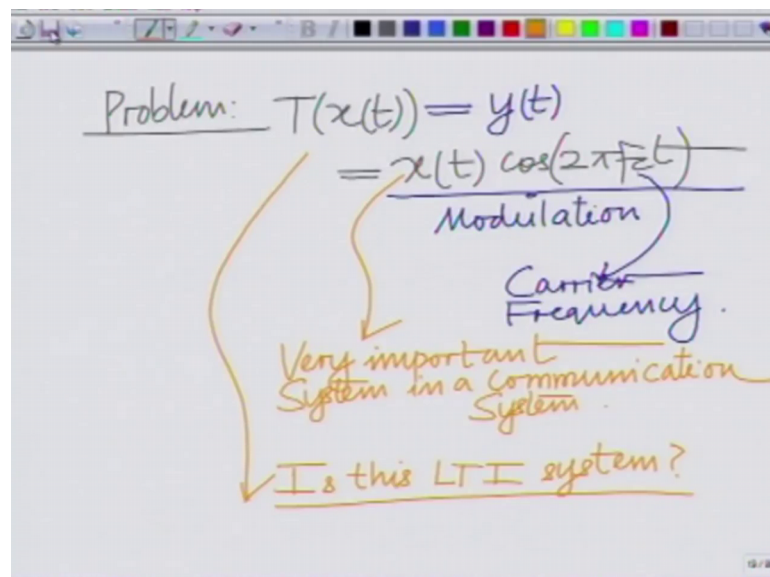 Problem: T(x(t)) = y(t)
= x(t) cos(2πfct)
Modulation
Carrier
Frequency.
Very important
System in a communication
System.
Is this LTI system?